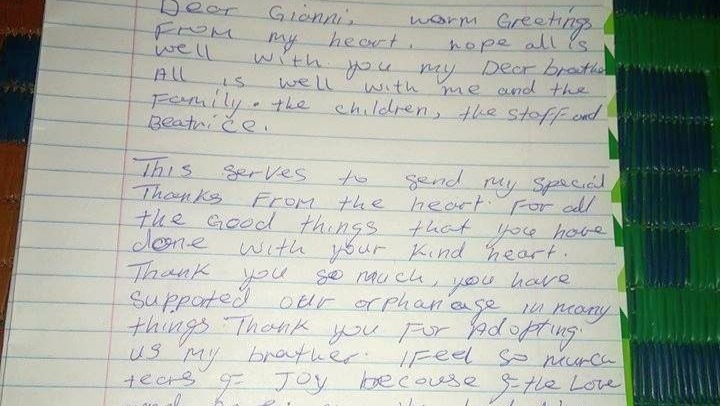 Dear Gianni, warm Greetings
From my heart. hope all is
well with you my Dear brothe
All is well with me and the
Family. the children, the staff and
Beatrice.
This serves to send my special
Thanks From the heart. For all
the Good things that you have
done with your kind heart.
Thank you so much, you have
supported our orphanage in many
things Thank you For Adopting.
us my brother. I Feel so much
tears of Joy because of the Love